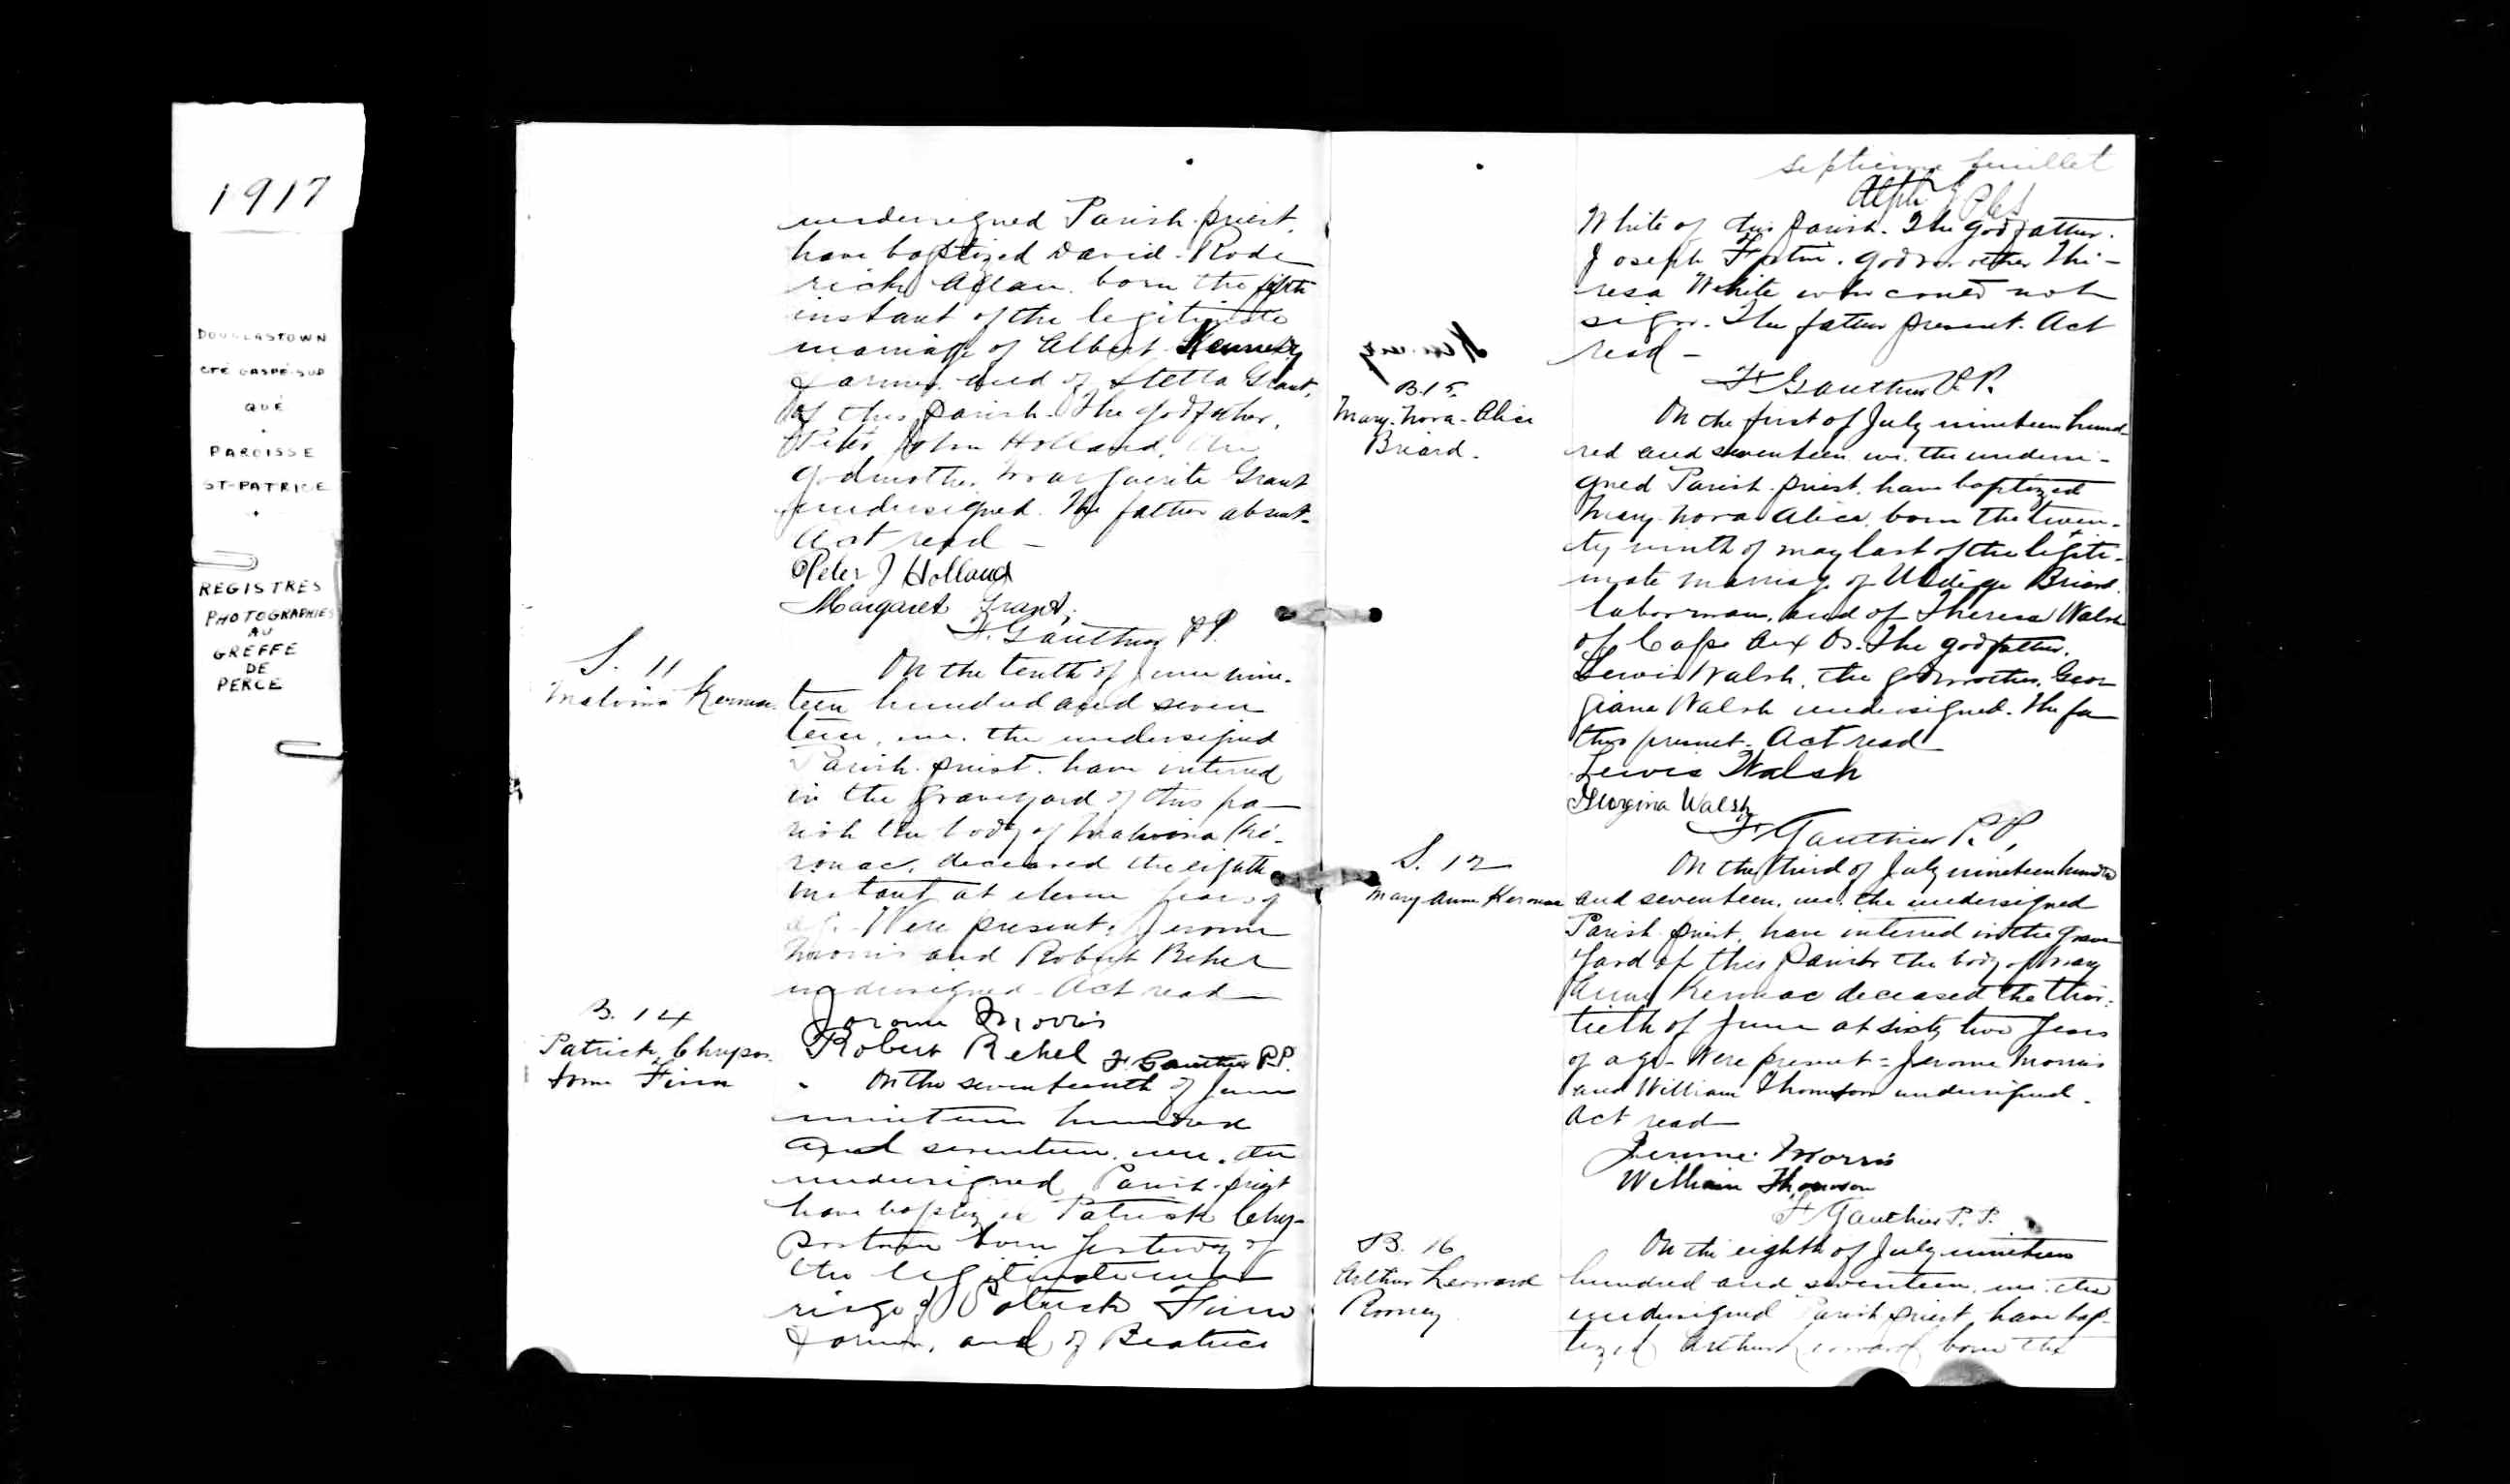 1917
DOUGLASTOWN
CTÉ GASPÉ-SUD
QUÉ
PAROISSE
ST-PATRICE
REGISTRES
PHOTOGRAPHIES
AU
GREFFE
DE
PERCE
undersigned Parish priest,
have baptized David-Rode
rick Allan, born the fifth
instant of the legitimate
marriage of Albert Kennedy
farmer and of Stella Grant,
of this parish. The godfather,
Peter John Holland, the
godmother Marguerite Grant
undersigned. The father absent.
Act read —
Peter J Holland
Margaret Grant,
F. Gauthier P.P.
S. 11
Malvina
On the tenth of June nine-
teen hundred and seven
teen, we, the undersigned
Parish priest, have interred
in the graveyard of this pa-
rish the body of Malvina Ké-
rouac, deceased the eighth
instant at eleven years of
age. Were present: Jerome
Morris and Robert Rehel
undersigned. Act read —
Jerome Morris
Robert Rehel F. Gauthier P.P.
B. 14
Patrick Chrysos
tome Finn
On the seventeenth of June
nineteen hundred
and seventeen, we, the
undersigned Parish-priest
have baptized Patrick Chry-
born yesterday of
the legitimate mar
riage of Patrick Finn
farmer, and of Beatrice
septième feuillet
White of this parish. The godfather.
Joseph godmother The-
resa White who could not
sign. The father present. Act
read —
F. Gauthier P.P.
B. 15.
Mary-Nora-Alice
Briard.
On the first of July nineteen hund-
red and seventeen, we, the undersi-
gned Parish-priest, have baptized
Mary Nora Alice, born the twen-
ty ninth of may last of the legiti-
mate marriage of Briard
laborman, and of Theresa Walsh
of Cape Aux Os. The godfather,
Lewis Walsh, the godmother, Geor
giana Walsh undersigned. The fa
ther present. Act read
Lewis Walsh
Georgina Walsh
F. Gauthier P.P.
S. 12
Mary Anne Kerouac
On the third of July nineteen hundred
and seventeen, we, the undersigned
Parish priest, have interred in the grave
yard of this Parish the body of Mary
Anne Kerouac deceased the thir-
tieth of June at sixty two years
of age. Were present: Jerome Morris
and William Thomson undersigned.
Act read —
Jerome Morris
William Thomson
F. Gauthier P.P.
B. 16
Arthur Leonard
Rooney
On the eighth of July nineteen
hundred and seventeen, we, the
undersigned Parish priest, have bap-
tized Arthur Leonard, born the